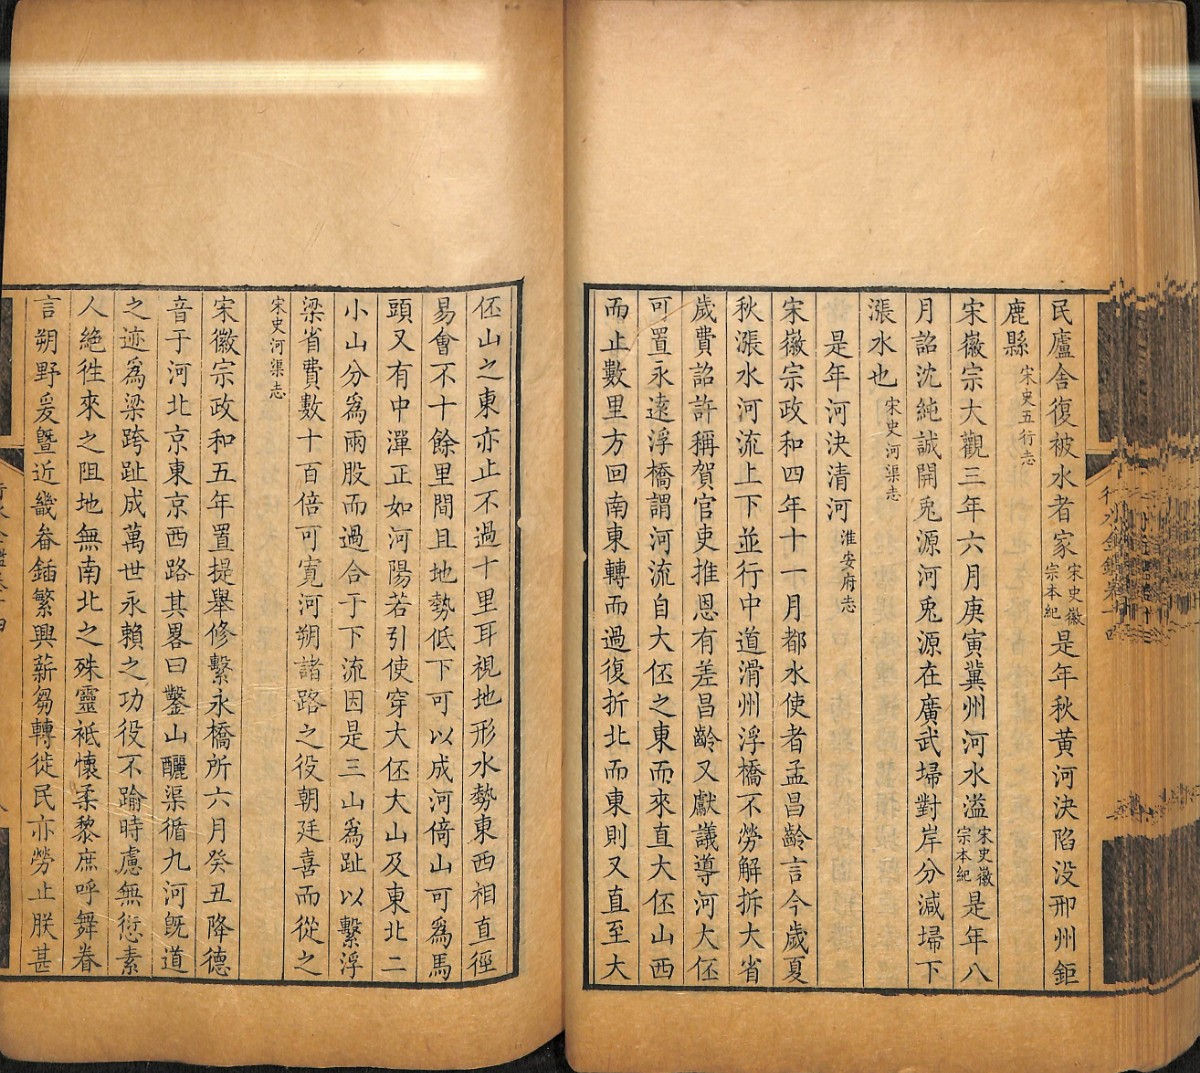 民廬舍復被水者家宋史徽宗本紀是年秋黄河決陷没邢州鉅
鹿縣宋史五行志
宋徽宗大觀三年六月庚寅冀州河水溢宋史徽宗本紀是年八
月詔沈純誠開兎源河兎源在廣武埽對岸分減埽下
漲水也宋史河渠志
是年河決清河淮安府志
宋徽宗政和四年十一月都水使者孟昌齡言今歲夏
秋漲水河流上下並行中道滑州浮橋不勞解拆大省
歲費詔許稱賀官吏推恩有差昌齡又獻議導河大伾
可置永遠浮橋謂河流自大伾之東而來直大伾山西
而止數里方回南東轉而過復折北而東則又直至大
伾山之東亦止不過十里耳視地形水勢東西相直徑
易會不十餘里間且地勢低下可以成河倚山可爲馬
頭又有中潬正如河陽若引使穿大伾大山及東北二
小山分爲兩股而過合于下流因是三山爲趾以繫浮
梁省費數十百倍可寛河朔諸路之役朝廷喜而從之
宋史河渠志
宋徽宗政和五年置提舉修繫永橋所六月癸丑降德
音于河北京東京西路其畧曰鑿山釃渠循九河旣道
之迹爲梁跨趾成萬世永賴之功役不踰時慮無愆素
人絶徃來之阻地無南北之殊靈祇懷柔黎庶呼舞眷
言朔野爰曁近畿畚鍤繁興薪芻轉徙民亦勞止朕甚